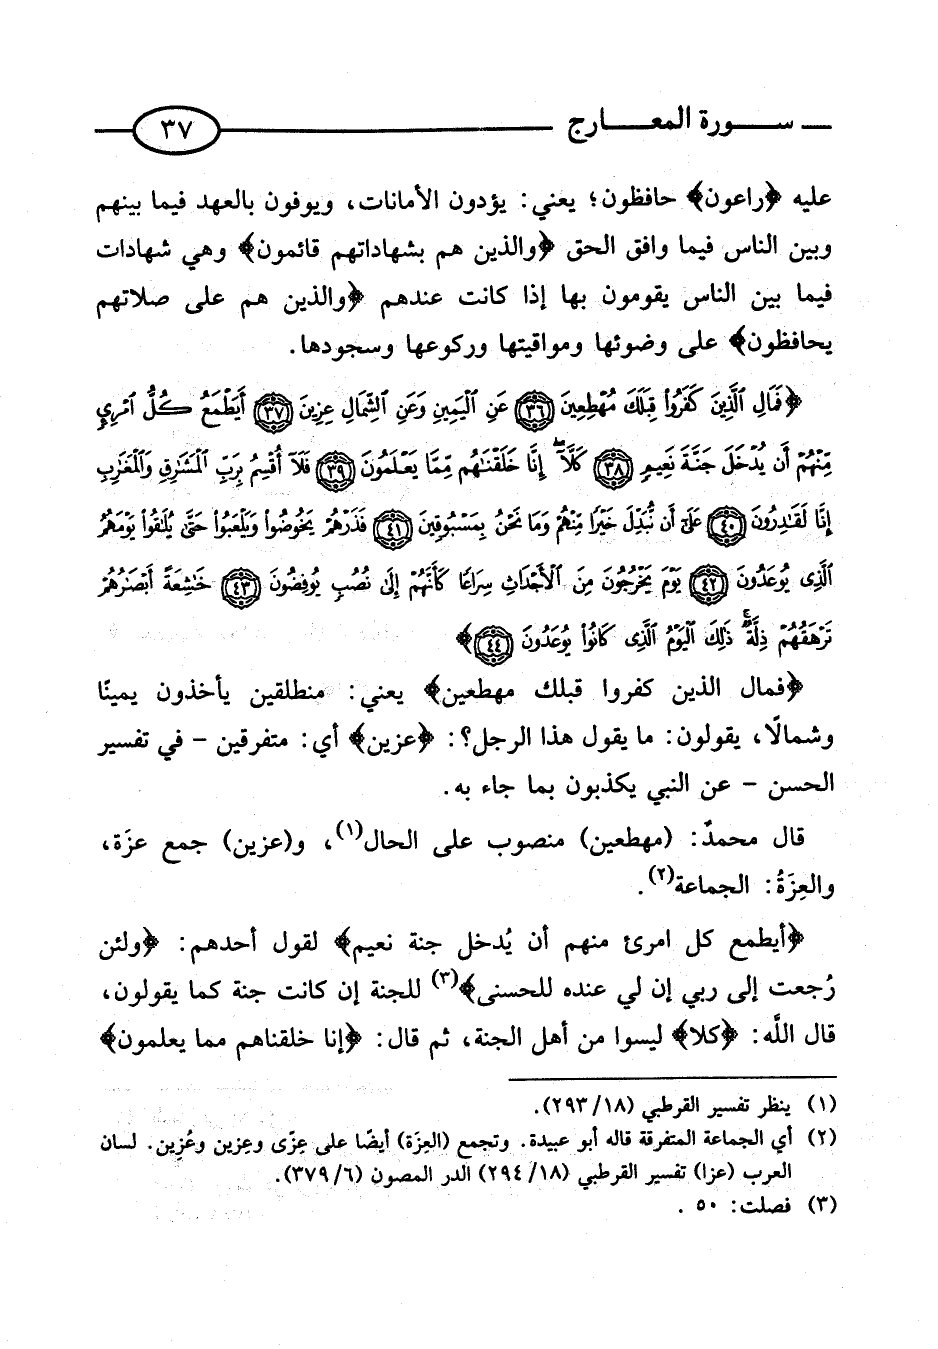 سورة المعارج ٣٧
عليه ﴿راعون﴾ حافظون؛ يعني: يؤدون الأمانات، ويوفون بالعهد فيما بينهم
وبين الناس فيما وافق الحق ﴿والذين هم بشهاداتهم قائمون﴾ وهي شهادات
فيما بين الناس يقومون بها إذا كانت عندهم ﴿والذين هم على صلاتهم
يحافظون﴾ على وضوئها ومواقيتها وركوعها وسجودها.
﴿فَالِ الَّذِينَ كَفَرُوا قِبَلَكَ مُهْطِعِينَ ٣٦ عَنِ الْيَمِينِ وَعَنِ الشِّمَالِ عِزِينَ ٣٧ أَيَطْمَعُ كُلُّ امْرِئٍ
مِّنْهُمْ أَن يُدْخَلَ جَنَّةَ نَعِيمٍ ٣٨ كَلَّا ۖ إِنَّا خَلَقْنَاهُم مِّمَّا يَعْلَمُونَ ٣٩ فَلَا أُقْسِمُ بِرَبِّ الْمَشَارِقِ وَالْمَغَارِبِ
إِنَّا لَقَادِرُونَ ٤٠ عَلَىٰ أَن نُّبَدِّلَ خَيْرًا مِّنْهُمْ وَمَا نَحْنُ بِمَسْبُوقِينَ ٤١ فَذَرْهُمْ يَخُوضُوا وَيَلْعَبُوا حَتَّىٰ يُلَاقُوا يَوْمَهُمُ
الَّذِي يُوعَدُونَ ٤٢ يَوْمَ يَخْرُجُونَ مِنَ الْأَجْدَاثِ سِرَاعًا كَأَنَّهُمْ إِلَىٰ نُصُبٍ يُوفِضُونَ ٤٣ خَاشِعَةً أَبْصَارُهُمْ
تَرْهَقُهُمْ ذِلَّةٌ ۚ ذَٰلِكَ الْيَوْمُ الَّذِي كَانُوا يُوعَدُونَ ٤٤﴾
﴿فمال الذين كفروا قبلك مهطعين﴾ يعني: منطلقين يأخذون يمينًا
وشمالًا، يقولون: ما يقول هذا الرجل؟: ﴿عزين﴾ أي: متفرقين – في تفسير
الحسن – عن النبي يكذبون بما جاء به.
قال محمدٌ: (مهطعين) منصوب على الحال(١)، و(عزين) جمع عزَة،
والعِزَةُ: الجماعة(٢).
﴿أيطمع كل امرئ منهم أن يُدخل جنة نعيم﴾ لقول أحدهم: ﴿ولئن
رُجعت إلى ربي إن لي عنده للحسنى﴾(٣) للجنة إن كانت جنة كما يقولون،
قال اللَّه: ﴿كلا﴾ ليسوا من أهل الجنة، ثم قال: ﴿إنا خلقناهم مما يعلمون﴾
(١) ينظر تفسير القرطبي (١٨/ ٢٩٣).
(٢) أي الجماعة المتفرقة قاله أبو عبيدة. وتجمع (العِزَة) أيضًا على عِزًى وعِزين وعُزِين. لسان
العرب (عزا) تفسير القرطبي (١٨/ ٢٩٤) الدر المصون (٦/ ٣٧٩).
(٣) فصلت: ٥٠.